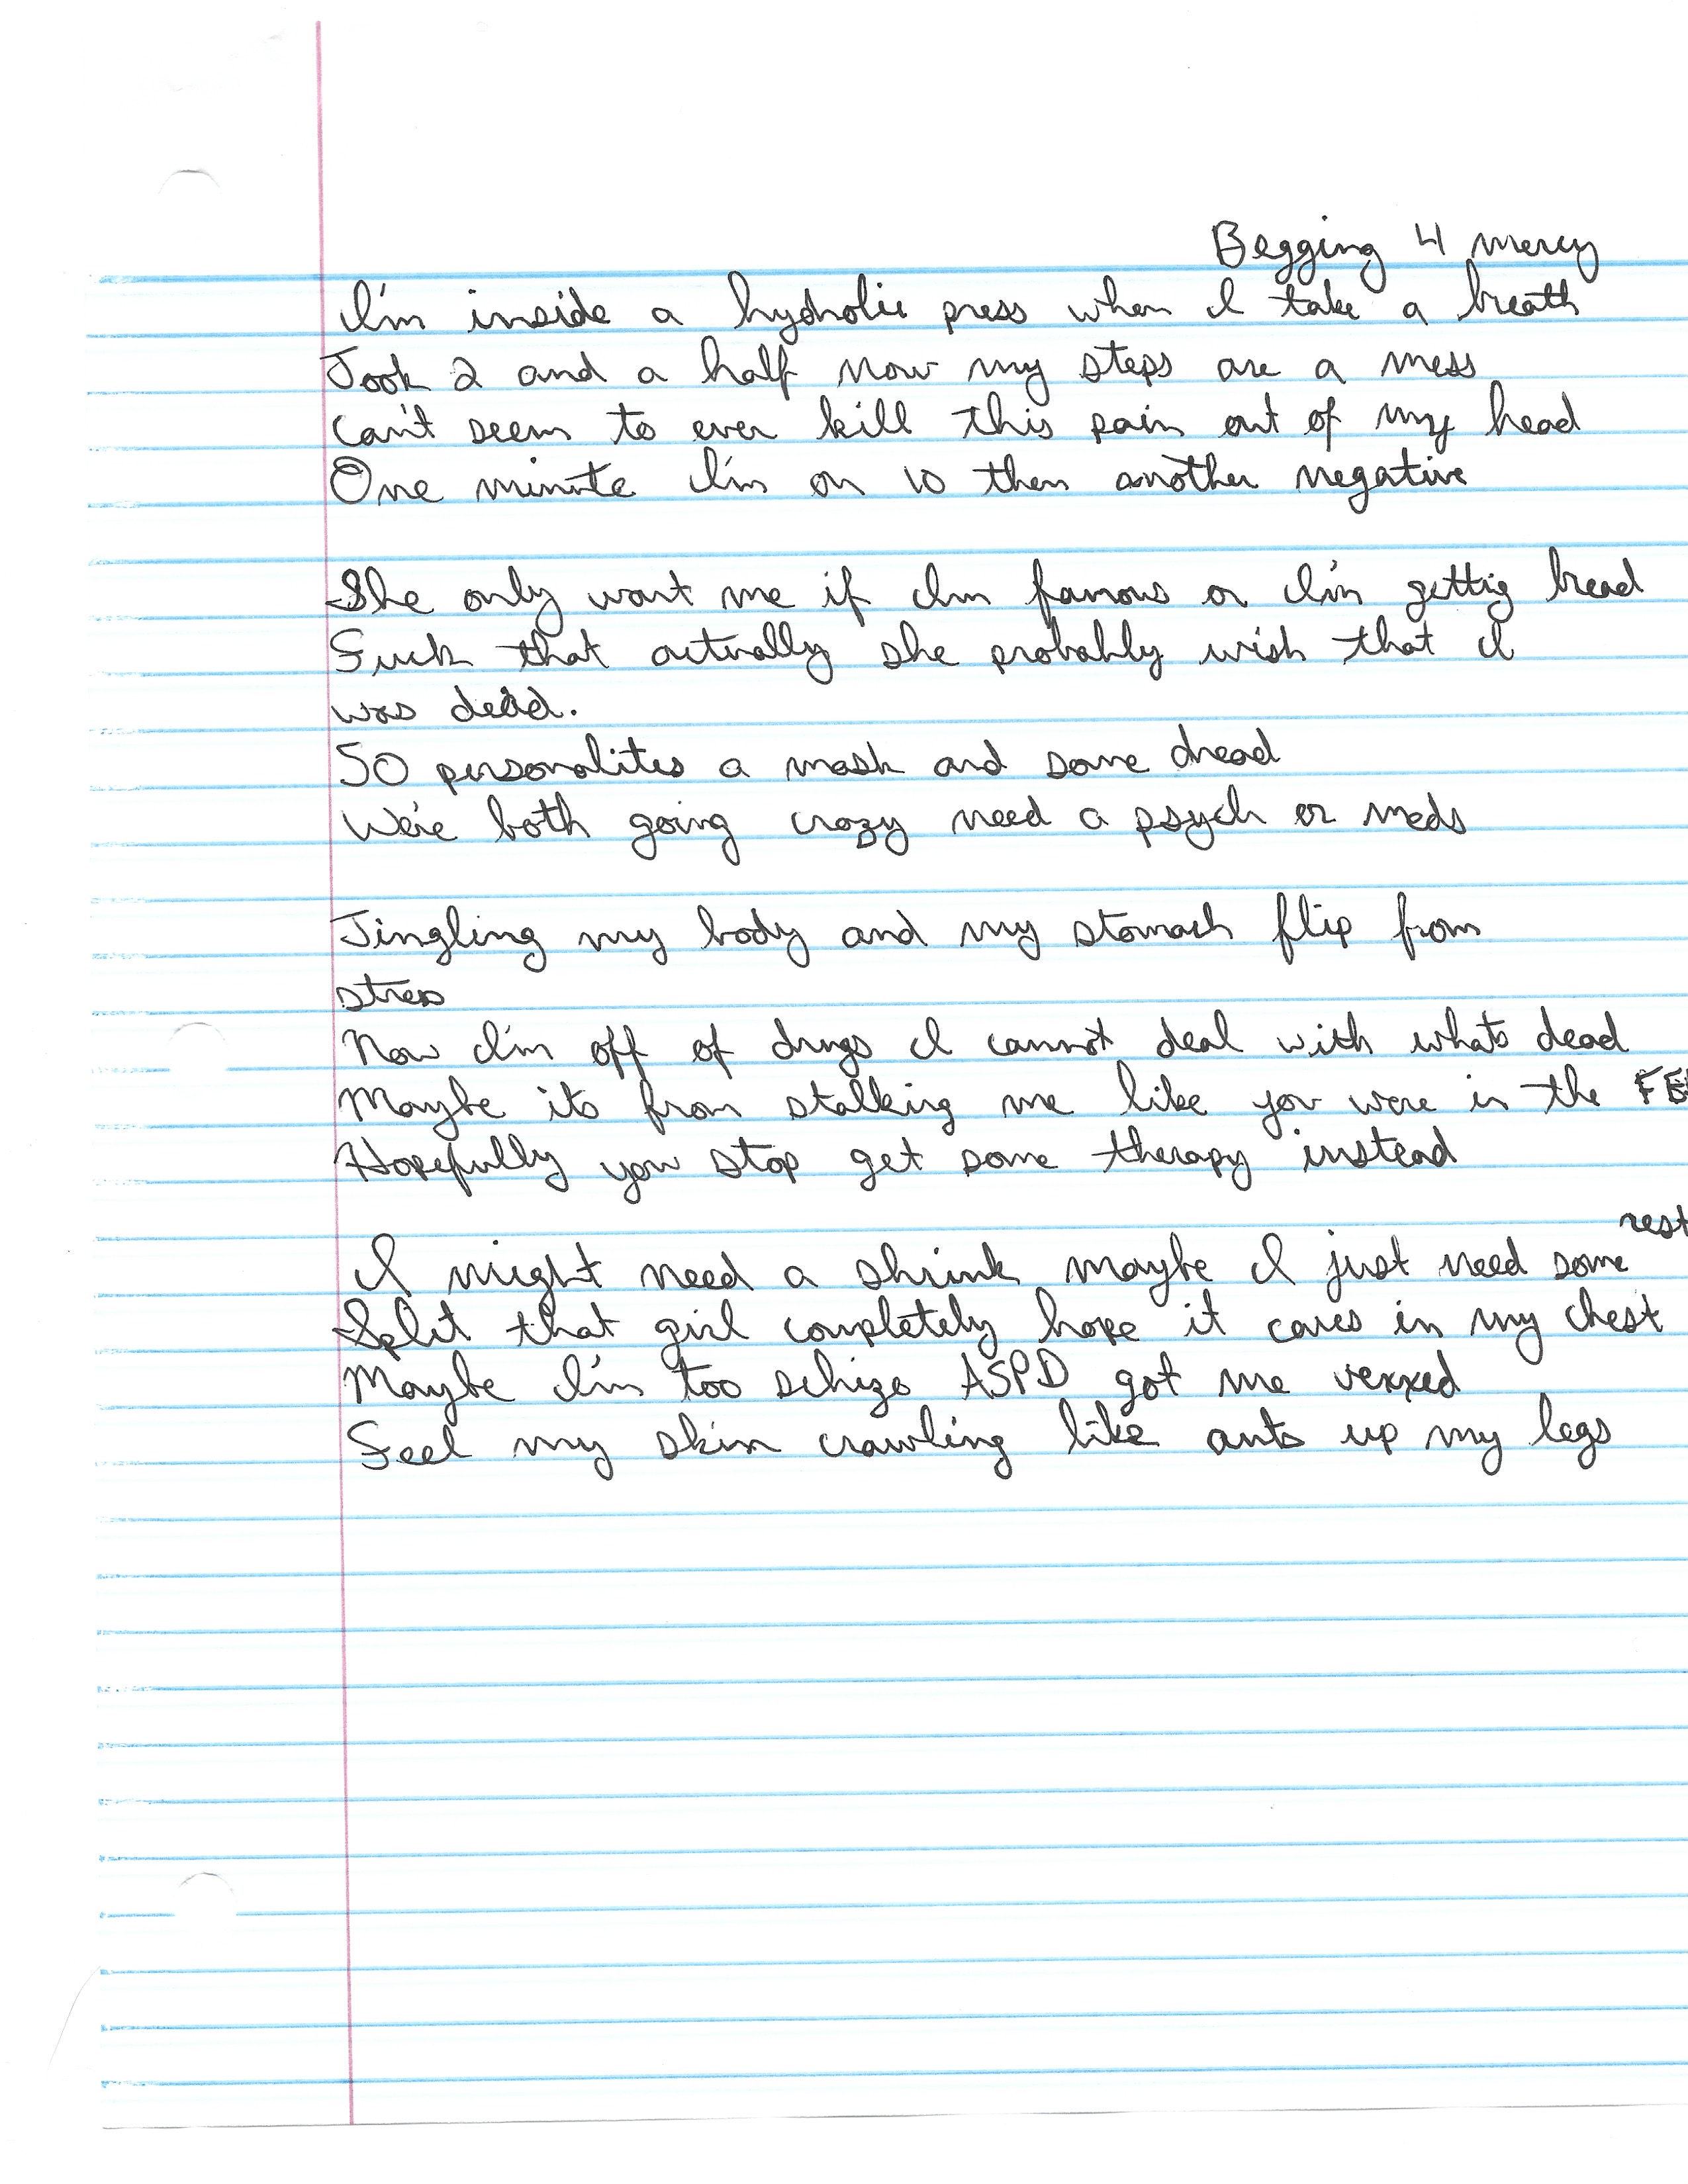 Begging 4 mercy
I'm inside a hydrolic press when I take a breath
Took 2 and a half now my steps are a mess
can't seem to ever kill this pain out of my head
One minute I'm on 10 then another negative
She only want me if I'm famous or I'm gettig bread
Fuck that actually she probably wish that I
was dead.
50 personalites a mask and some dread
We're both going crazy need a psych or meds
Tingling my body and my stomach flip from
stress
Now I'm off of drugs I cannot deal with whats dead
Maybe its from stalking me like you were in the
Hopefully you stop get some therapy instead
rest
I might need a shrink maybe I just need some
Split that girl completely hope it caves in my chest
Maybe I'm too schizo ASPD got me vexxed
Feel my skin crawling like ants up my legs